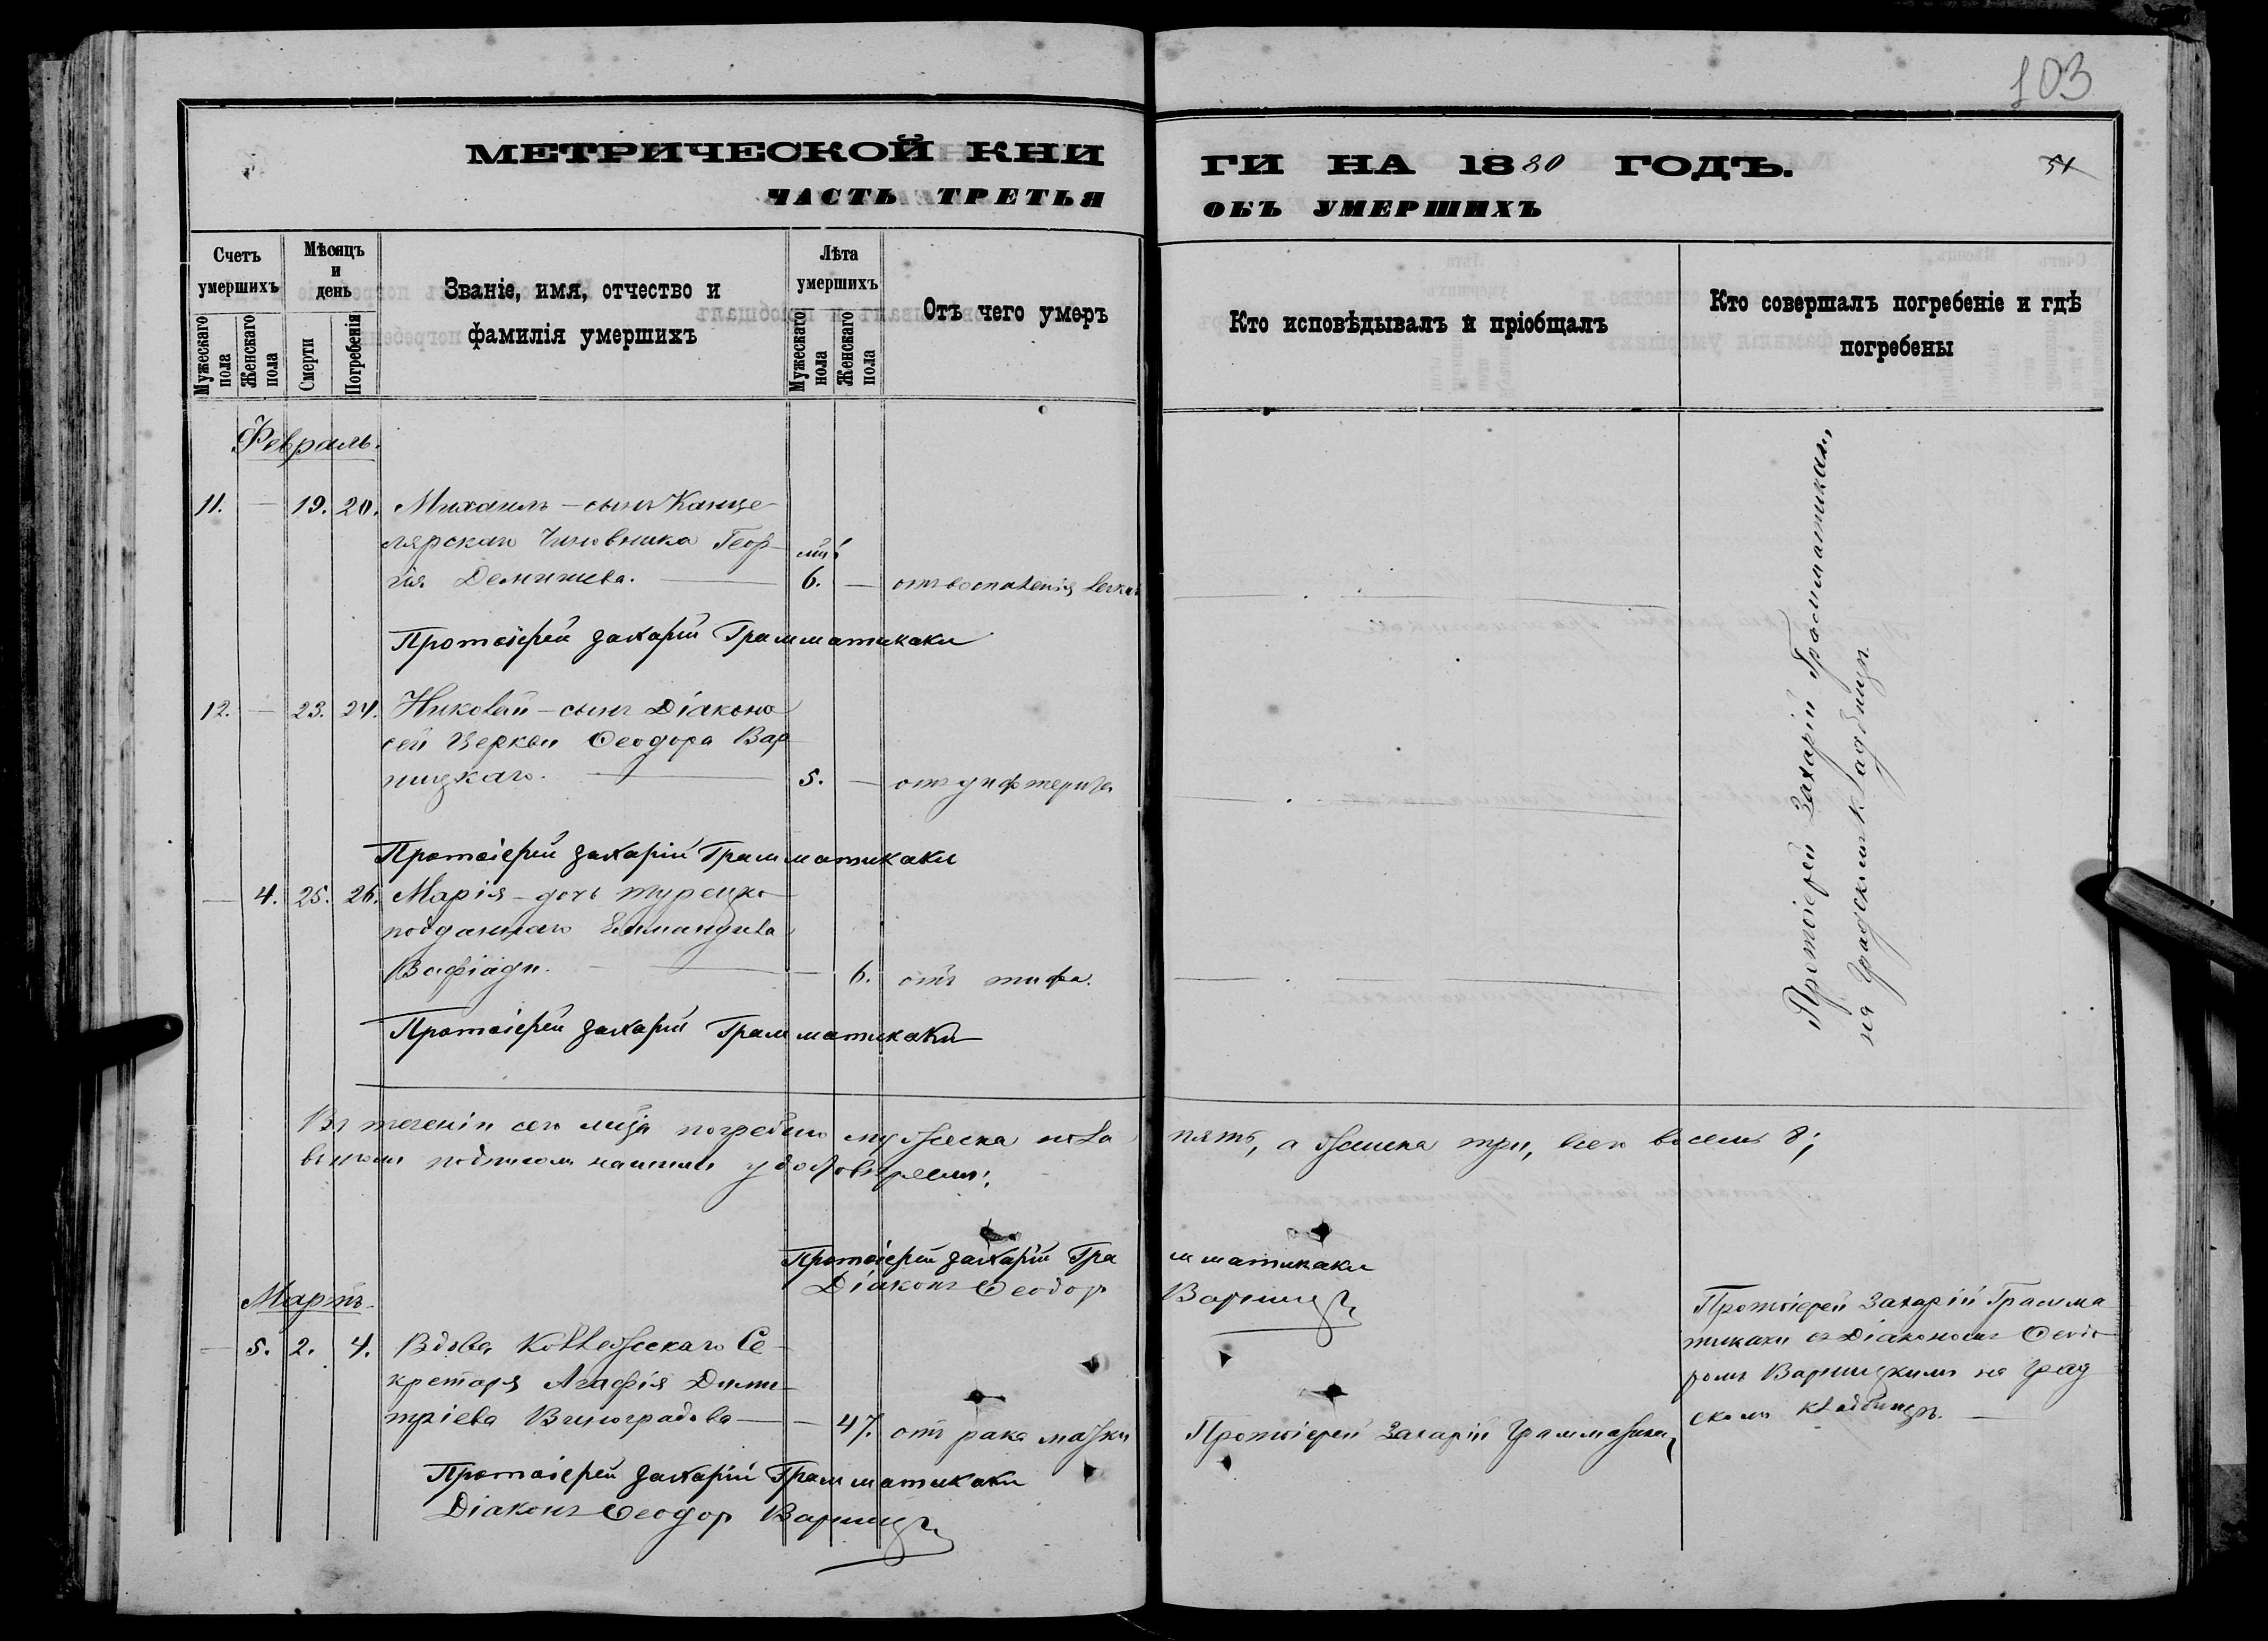 103
МЕТРИЧЕСКОЙ КНИ
ГИ НА 1880 ГОДЪ.
51
ЧАСТЬ ТРЕТЬЯ
ОБЪ УМЕРШИХЪ
Счетъ умершихъ
Мужескаго пола
Женскаго пола
Мѣсяцъ и день
Смерти
Погребенія
Званіе, имя, отчество и
фамилія умершихъ
Лѣта умершихъ
Мужескаго пола
Женскаго пола
Отъ чего умеръ
Кто исповѣдывалъ и пріобщалъ
Кто совершалъ погребеніе и гдѣ
погребены
Февраль.
11. — 19. 20. Михаилъ – сынъ Канце
лярскаго Чиновника Геор
гія Демишева. — 6. — отъ воспаленія легких
Протоіерей Захарій Грамматикаки
12. — 23. 24. Николай – сынъ Діакона
сей Церкви Ѳеодора Вар
ницкаго. — 5. — отъ дифтерита
Протоіерей Захарій Грамматикаки
— 4. 25. 26. Марія – дочь турецко
подданнаго
Вафіади. — — 6. отъ тифа.
Протоіерей Захарій Грамматикаки
Протоіерей Захарій Грамматикаки,
на градскомъ кладбищѣ.
Въ теченіи сего м-ца погребено мужеска пола пять, а женска три, всего восемь 8;
въ чемъ подписомъ нашимъ удостовѣряемъ:
Протоіерей Захарій Грамматикаки
Діаконъ Ѳеодор Варницк
Мартъ.
— 5. 2. 4. Вдова Коллежскаго Се
кретаря Агафія Дими
тріева Виноградова — — 47. отъ рака матки
Протоіерей Захарій Грамматикаки
Протоіерей Захарій Грамма
тикаки съ Діакономъ Ѳеодо
ромъ Варницкимъ на град
скомъ кладбищѣ. —
Протоіерей Захарій Грамматикаки
Діаконъ Ѳеодор Варницк